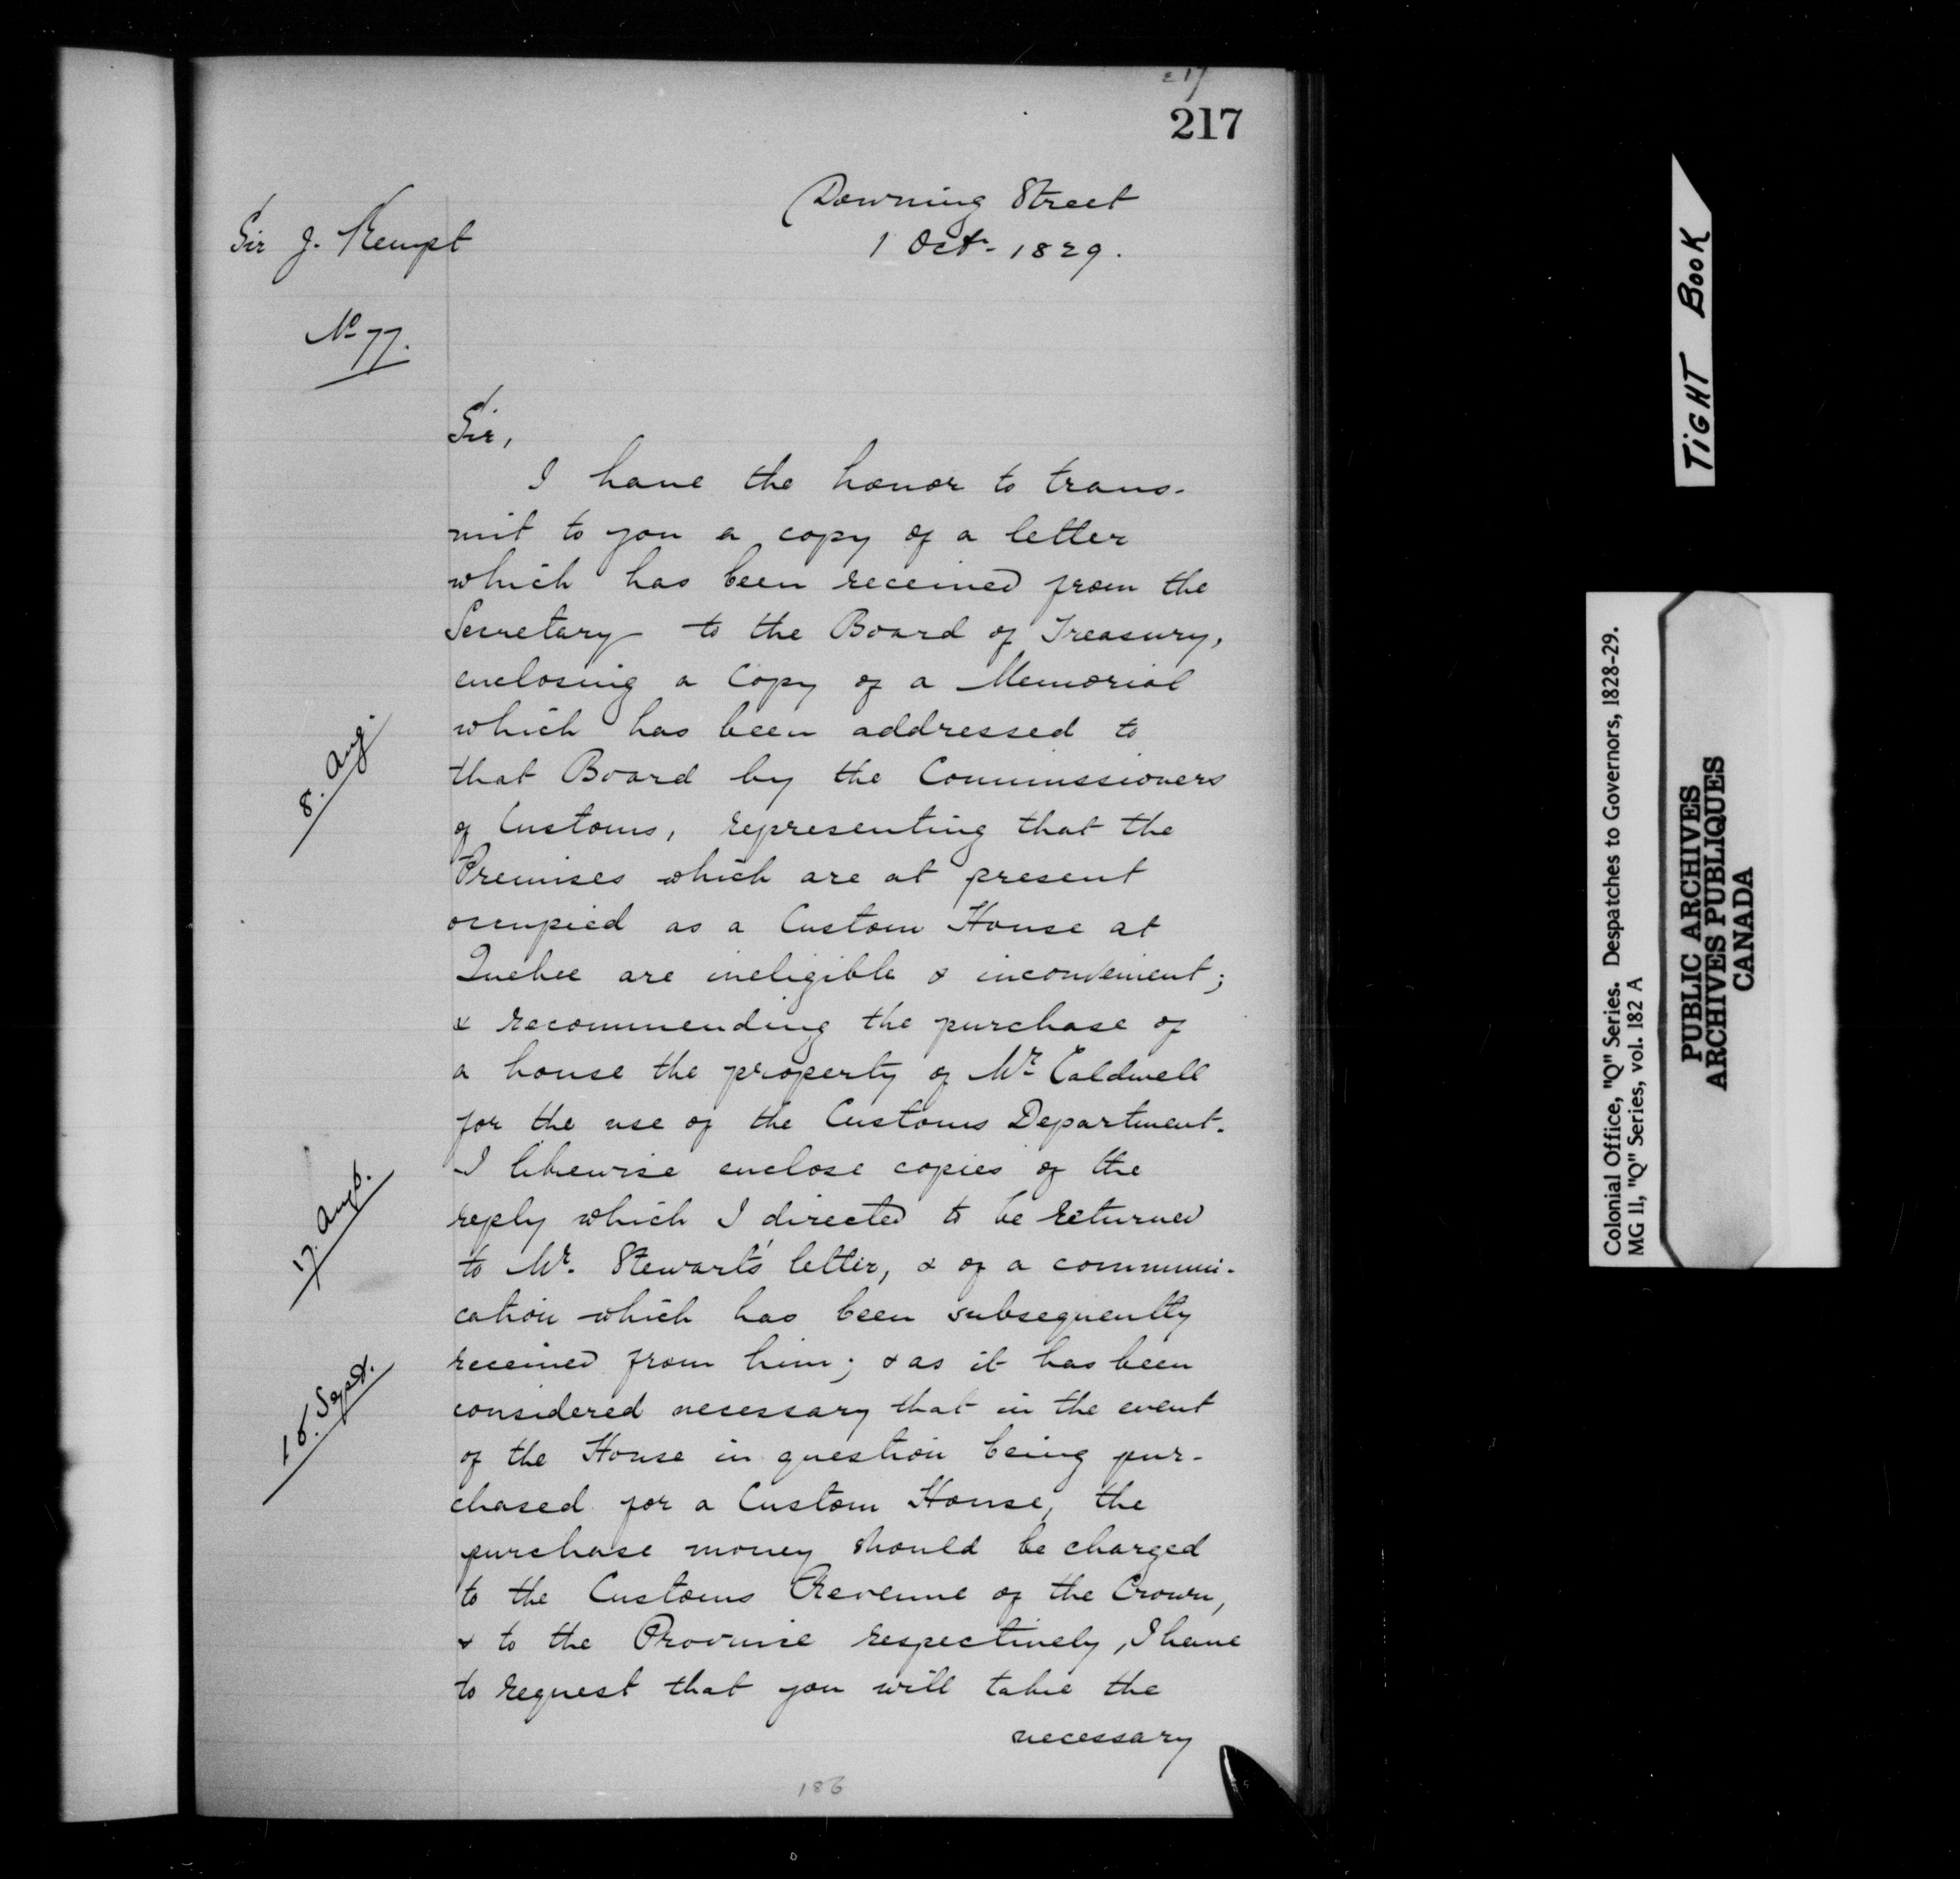 217
217
Downing Street
1 Octr. 1829.
Sir J. Kempt
No 77.
Sir,
I have the honor to trans-
mit to you a copy of a letter
which has been received from the
Secretary to the Board of Treasury,
enclosing a Copy of a Memorial
which has been addressed to
8. Aug.
that Board by the Commissioners
of Customs, representing that the
Premises which are at present
occupied as a Custom House at
Quebec are ineligible & inconvenient;
& recommending the purchase of
a house the property of Mr Caldwell
for the use of the Customs Department.
I likewise enclose copies of the
17. Augt.
reply which I directed to be returned
to Mr. Stewart's letter, & of a communi-
cation which has been subsequently
received from him; & as it has been
Sept.
considered necessary that in the event
of the House in question being pur-
chased for a Custom House, the
purchase money should be charged
to the Customs Revenue of the Crown,
& to the Province respectively, I have
to request that you will take the
necessary
186
TIGHT BOOK
Colonial Office, "Q" Series. Despatches to Governors, 1828-29.
MG 11, "Q" Series, vol. 182 A
PUBLIC ARCHIVES
ARCHIVES PUBLIQUES
CANADA